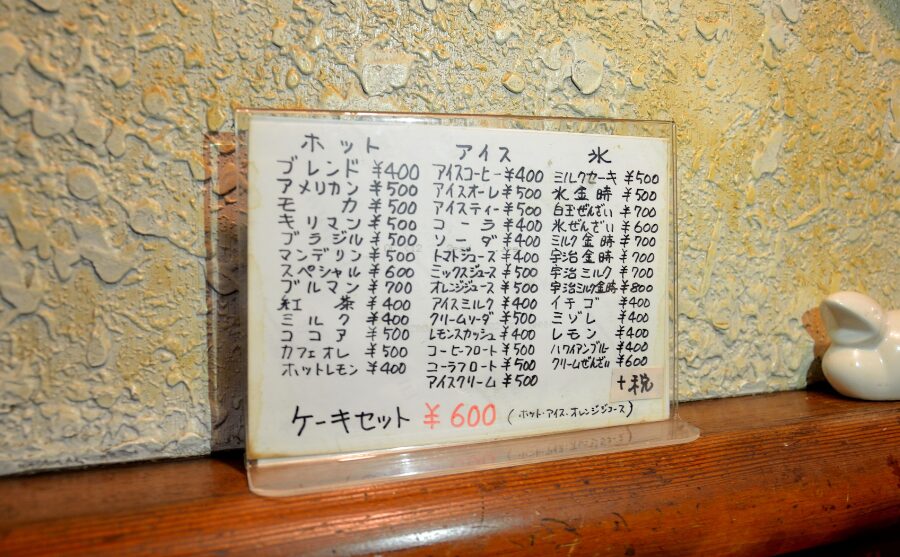 ホット
ブレンド ¥400
アメリカン ¥500
モカ ¥500
キリマン ¥500
ブラジル ¥500
マンデリン ¥500
スペシャル ¥600
ブルマン ¥700
紅茶 ¥400
ミルク ¥400
ココア ¥500
カフェオレ ¥500
ホットレモン ¥400
アイス
アイスコーヒー ¥400
アイスオーレ ¥500
アイスティー ¥500
コーラ ¥400
ソーダ ¥400
トマトジュース ¥400
ミックスジュース ¥500
オレンジジュース ¥500
アイスミルク ¥400
クリームソーダ ¥500
レモンスカッシュ ¥400
コーヒーフロート ¥500
コーラフロート ¥500
アイスクリーム ¥500
氷
ミルクセーキ ¥500
氷金時 ¥500
白玉ぜんざい ¥700
氷ぜんざい ¥600
ミルク金時 ¥700
宇治金時 ¥700
宇治ミルク ¥700
宇治ミルク金時 ¥800
イチゴ ¥400
ミゾレ ¥400
レモン ¥400
ハワイアンブルー ¥400
クリームぜんざい ¥600
+税
ケーキセット ¥600 (ホット・アイス・オレンジジュース)